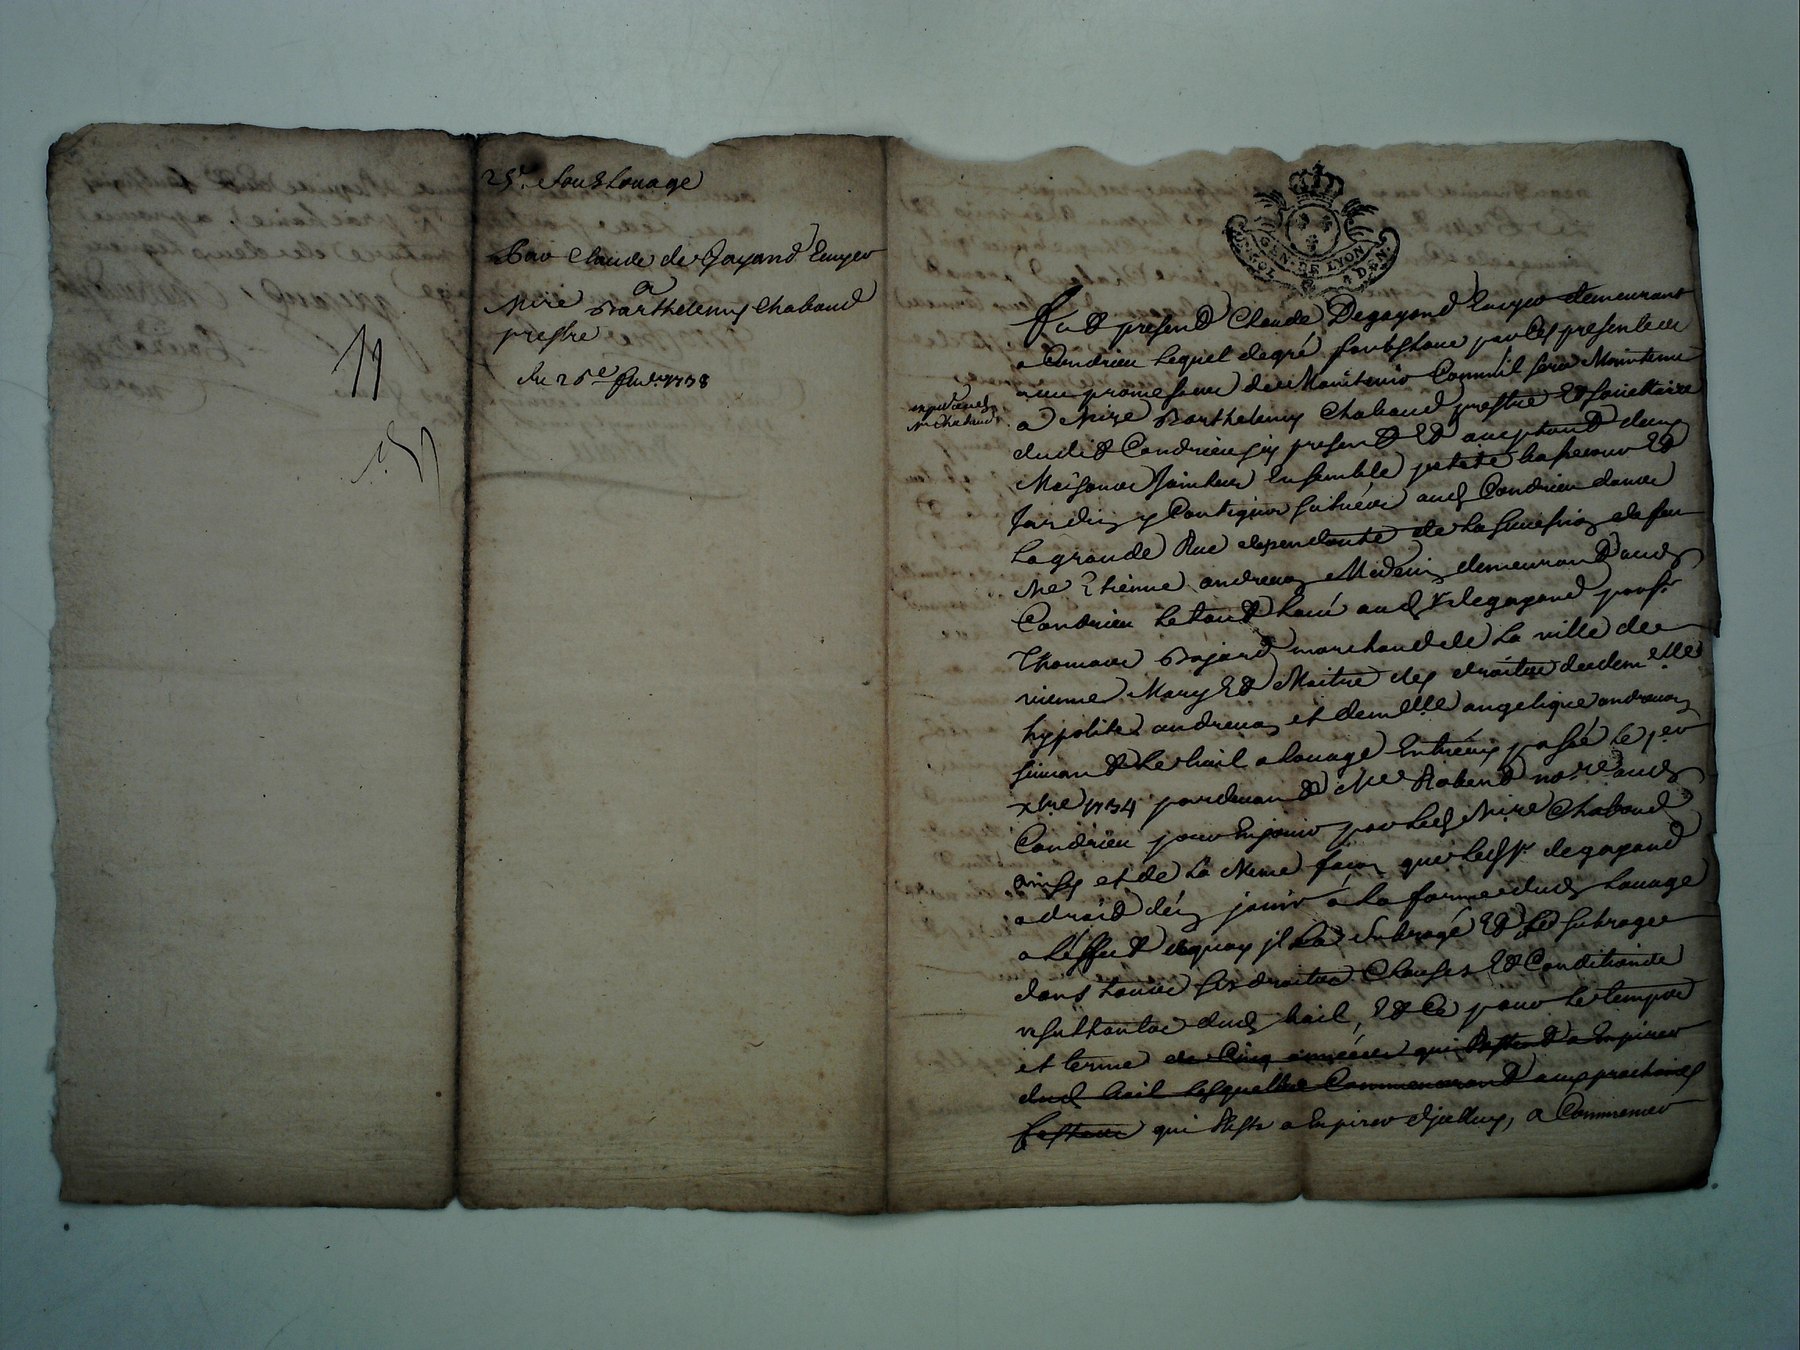 25e Souslouage
Par Claude de Gayand Ecuyer
a
Mire Barthelemy Chabaud
prestre
du 26e 1738
11
GEN. DE LYON
Fut present Claude Degayand Ecuyer demeurant
a Condrieu lequel de gré soubsloue par ces presentes
avec promesse de Maintenir
a Mire Barthelemy Chabaud prestre et societaire
dudit Condrieu icy present et acceptant deux
Maisons Jointes Ensemble
Jardin y Contigus situées aud Condrieu dans
la grande Rue dependante de la succession de feu
Me Etienne andrevon Medecin demeurant aud
Condrieu le tout loué aud sr degayand par sr
Thomas Bajard marchand de la ville de
vienne Mary et Maitre des droits de demelle
hypolite andrevon et demelle angelique andrevon
suivant le bail a louage Entreeux passé le 1er
xbre 1734 pardevant Me Robert nore aud
Condrieu pour En jouir par led Mire Chabaud
ainsy et de la Meme façon que led sr degayand
a droit d'en jouir a la forme dud louage
a l'effet de quoy il la subrogé et le subroge
dans tous ses droits Clauses et Conditions
resultantes dud bail, et Ce pour le temps
et terme de Cinq années qui Restent a Expirer
dud bail lesquelles Commenceront aux prochaines
festes qui Reste a Expirer d'jcelluy, a Commencer